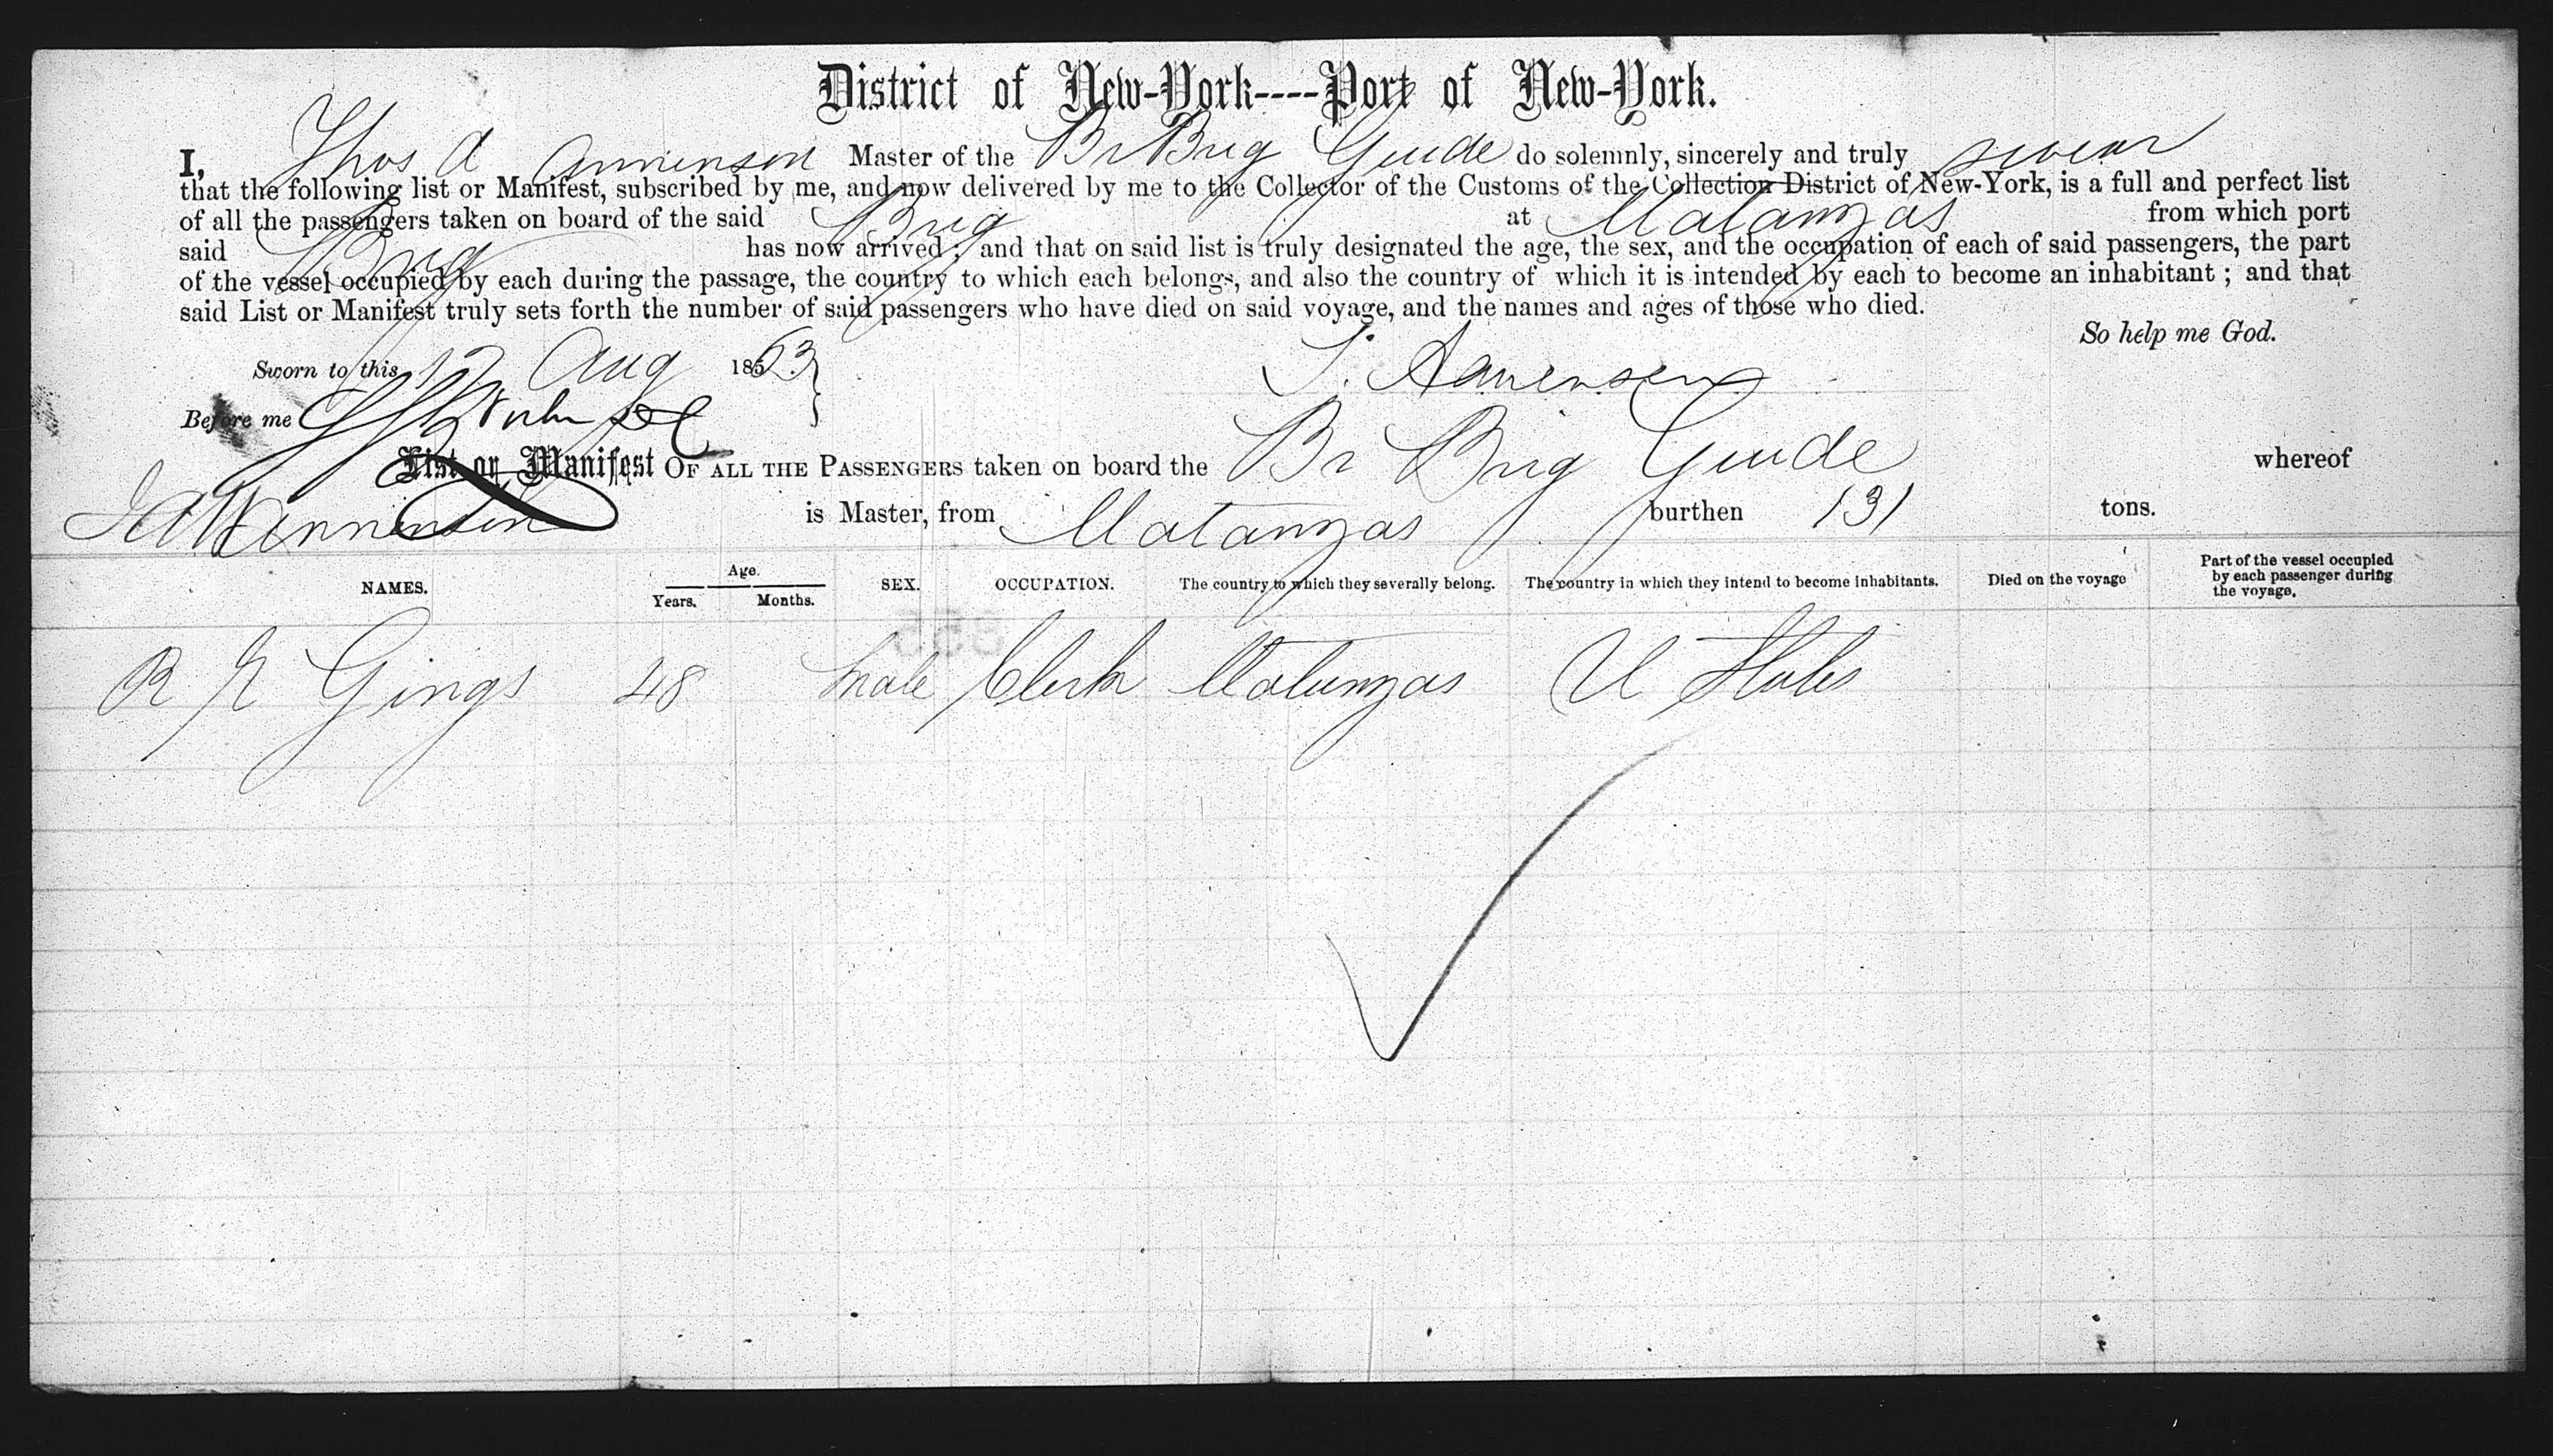 District of New-York----Port of New-York.
I, Thos A Master of the Br Brig Guide do solemnly, sincerely and truly swear
that the following list or Manifest, subscribed by me, and now delivered by me to the Collector of the Customs of the Collection District of New-York, is a full and perfect list
of all the passengers taken on board of the said Brig at Matanzas from which port
said Brig has now arrived; and that on said list is truly designated the age, the sex, and the occupation of each of said passengers, the part
of the vessel occupied by each during the passage, the country to which each belongs, and also the country of which it is intended by each to become an inhabitant; and that
said List or Manifest truly sets forth the number of said passengers who have died on said voyage, and the names and ages of those who died.
So help me God.
Sworn to this 12 Aug 1863
Before me
List or Manifest OF ALL THE PASSENGERS taken on board the Br Brig Guide whereof
is Master, from Matanzas burthen 131 tons.
NAMES. Age. Years. Months. SEX. OCCUPATION. The country to which they severally belong. The country in which they intend to become inhabitants. Died on the voyage Part of the vessel occupied by each passenger during the voyage.
R Gings 48 male Clerk Matanzas U States